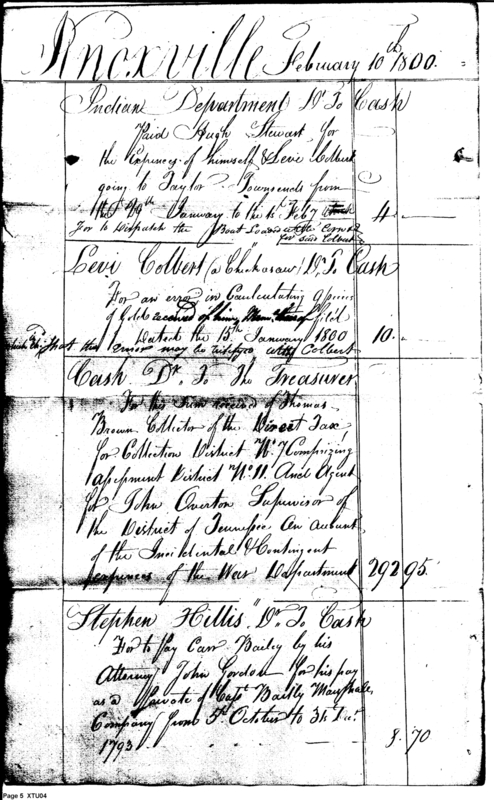 Knoxville February 10th 1800.
Indian Department Dr To Cash
Paid Hugh Stewart for
the Expences of himself & Levi Colbert
going to Taylor Townsends from
the 29th January to the Feby 4
For to Dispatch the Boat Loaded with Corn
for said Colbert
Levi Colbert (a Chickasaw) Dr To Cash
For an error in Caulculating a piece
of Gold received of him
Dated the 15th January 1800 10.
that the error may be with Colbert
Cash Dr To The Treasurer
For this Sum received of Thomas
Brown Collector of the Direct Tax
for Collection District No. 7 Comprizing
assessment District No. 11. And Agent
for John Overton Supervisor of
the District of Tennessee On account
of the Incidental & Contingent
expences of the War Department 292 95.
Stephen Hillis Dr To Cash
For to pay Carr Bailey by his
Attorney John Gordon for his pay
as a Private of Capt Bailey
Company from 5th October to Decr
1793 8. 70
Page 5 XTU04